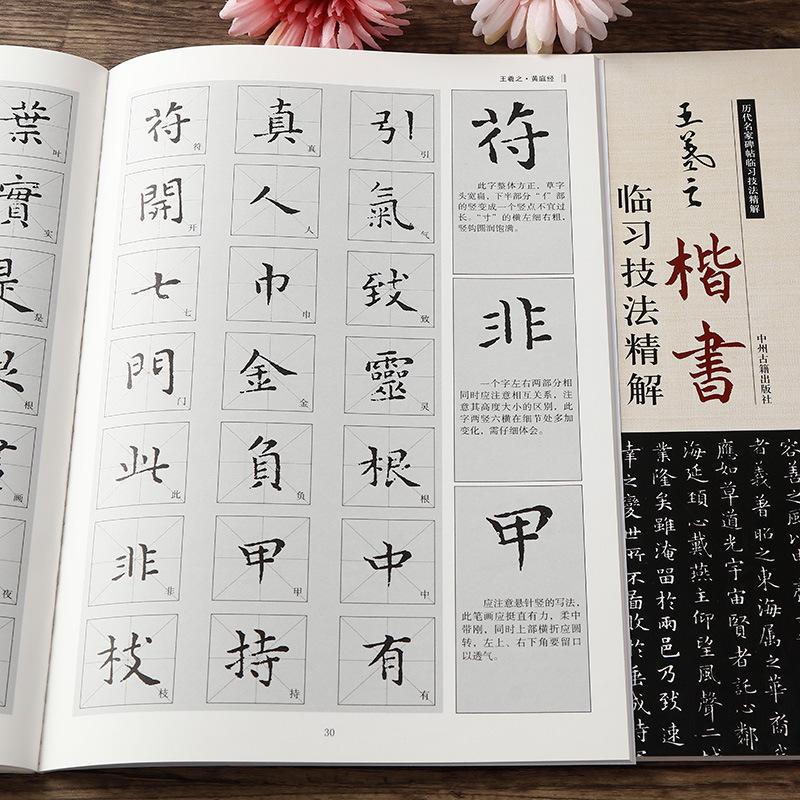 葉 叶
實 实
是 是
根
画
夜
王羲之·黄庭经
符 符 真 真 引 引
開 开 人 人 氣 气
七 七 巾 巾 致 致
門 门 金 金 靈 灵
此 此 負 负 根 根
非 非 甲 甲 中 中
枝 枝 持 持 有 有
符
此字整体方正，草字
头宽扁，下半部分“亻”部
的竖变成一个竖点不宜过
长。“寸”的横左细右粗，
竖钩圆润饱满。
非
一个字左右两部分相
同时应注意相互关系，注
意其高度大小的区别，此
字两竖六横在细节处多加
变化，需仔细体会。
甲
应注意悬针竖的写法，
此笔画应挺直有力，柔中
带刚，同时上部横折应圆
转，左上、右下角要留口
以透气。
30
历代名家碑帖临习技法精解
王羲之
楷書
临习技法精解
中州古籍出版社
容善之風以申齊
者義普昭之東海属之華裔
應如草道光宇宙賢者託心鄰
海延頸心戴燕主仰望風聲二城
業隆矣雖淹留於兩邑乃致速
幸之變世所不圖敗於垂成時